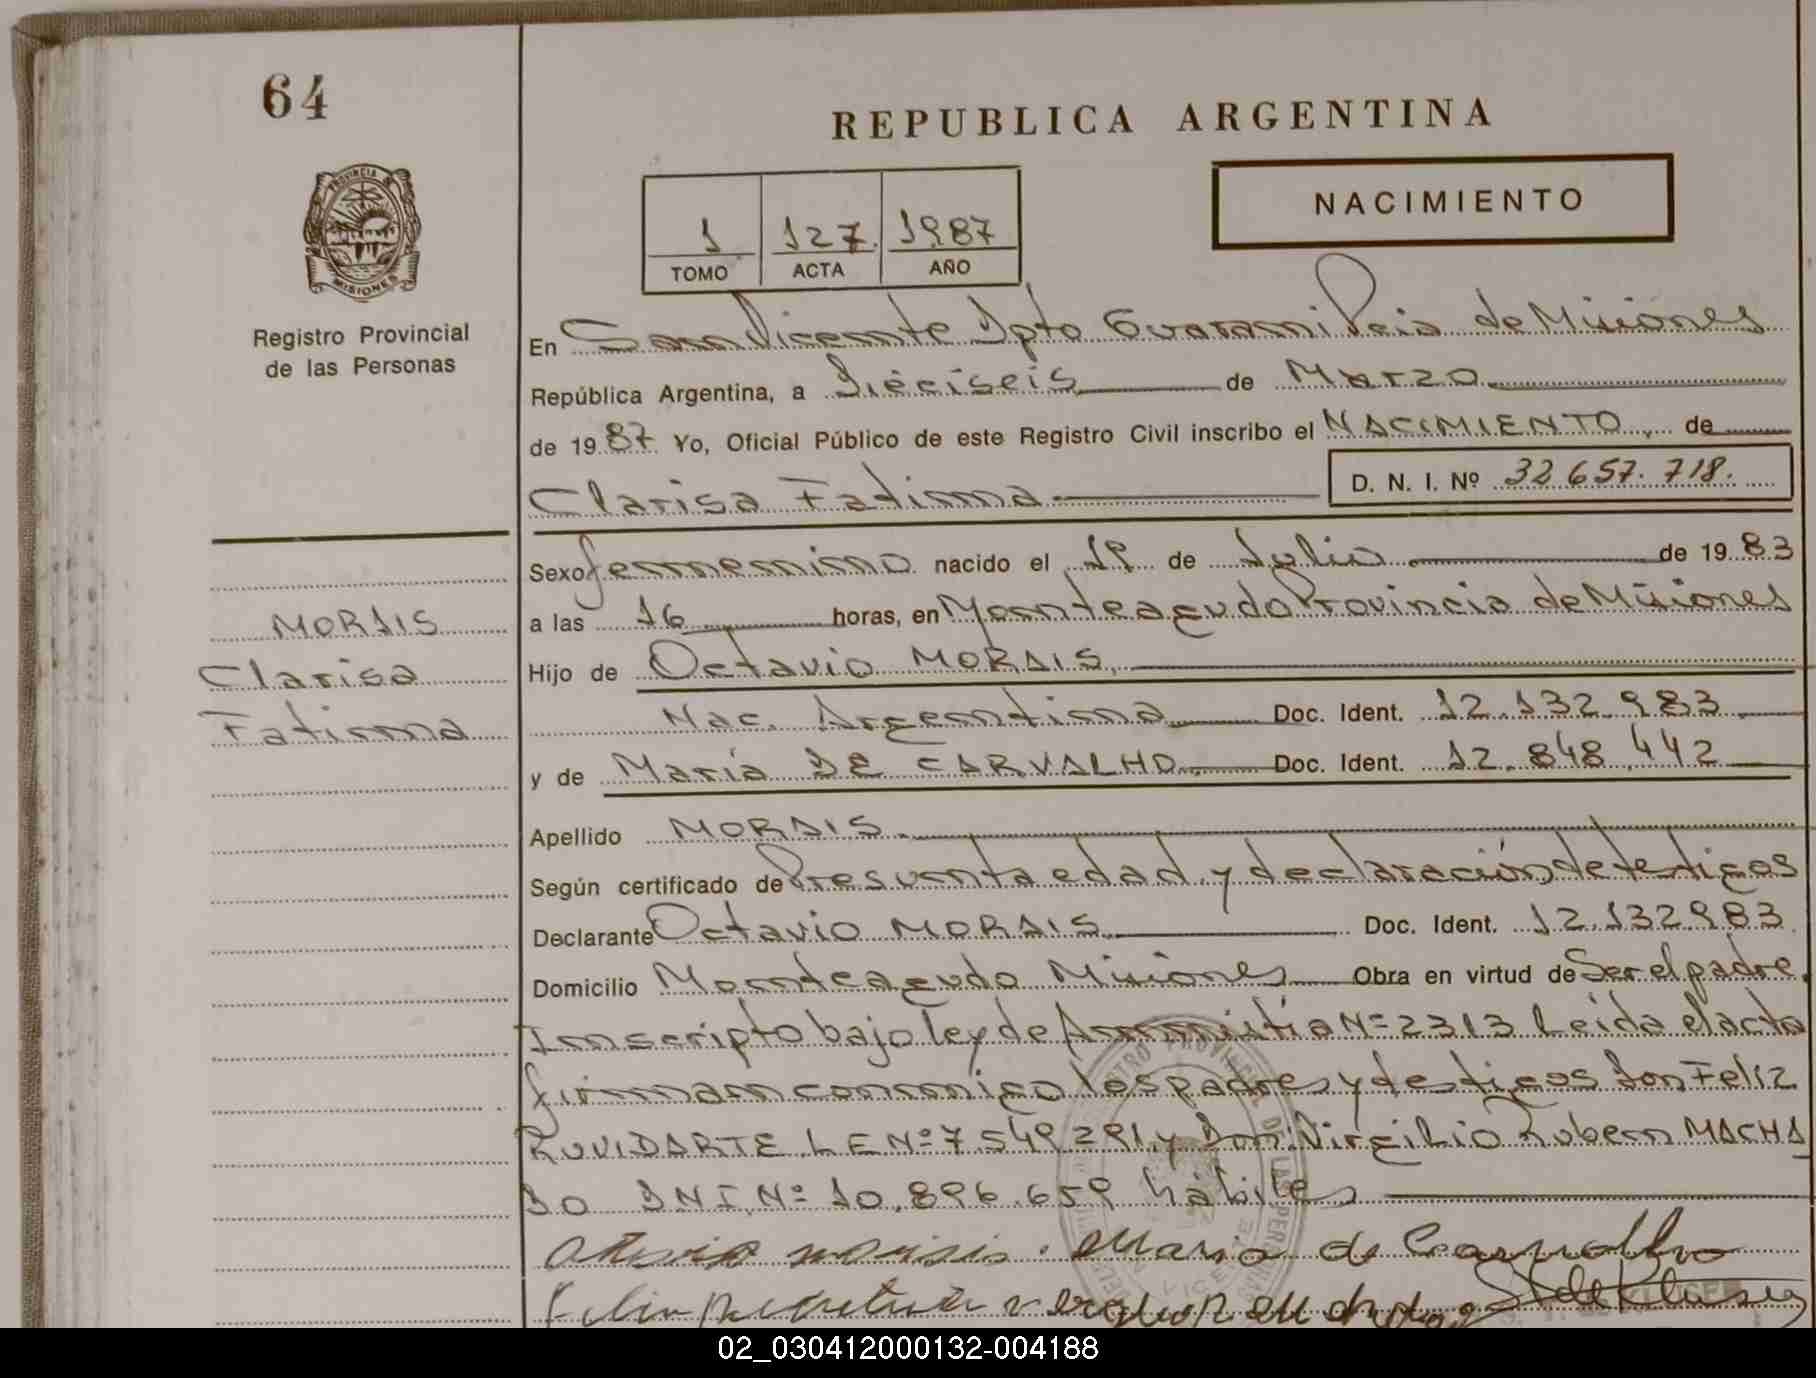 64
REPUBLICA ARGENTINA
PROVINCIA DE
MISIONES
1 127 1987
TOMO ACTA AÑO
NACIMIENTO
Registro Provincial
de las Personas
En San Vicente Dpto Guarani Pcia de Misiones
República Argentina, a Dieciseis de Marzo
de 1987 Yo, Oficial Público de este Registro Civil inscribo el NACIMIENTO, de
Clarisa Fatima D. N. I. Nº 32 657.718.
Sexo femenino nacido el 19 de Julio de 1983
a las 16 horas, en Monteagudo Provincia de Misiones
Hijo de Octavio MORAIS,
Nac. Argentina Doc. Ident. 12.132.983
y de María DE CARVALHO Doc. Ident. 12.848.442
Apellido MORAIS
Según certificado de Presunta edad y declaración de testigos
Declarante Octavio MORAIS Doc. Ident. 12.132.983
Domicilio Monteagudo Misiones Obra en virtud de Ser el padre.
Inscripto bajo ley de Amnistia Nº 2313 Leída el acta
firman conmigo los padres y testigos Don Feliz
RUVIDARTE L E Nº 7.549291 y Don Virgilio Ruben MACHA
DO DNI. Nº 10.896.659 hábiles
MORAIS
Clarisa
Fatima
Maria de Carvalho
02_030412000132-004188